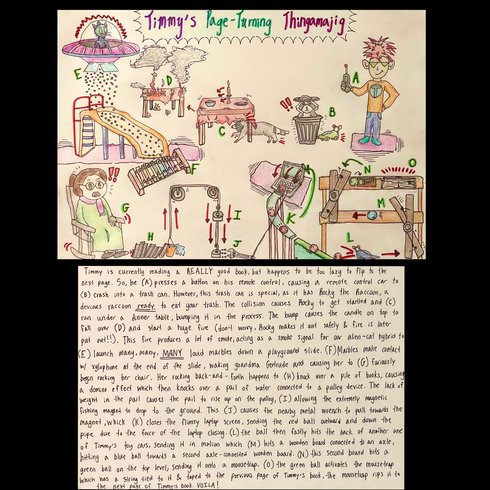 Timmy's Page-Turning Thingamajig
A
B
C
D
E
F
G
H
I
J
K
L
M
N
O
T
!!
!!
Timmy is currently reading a REALLY good book, but happens to be too lazy to flip to the
next page. So, he (A) presses a button on his remote control, causing a remote control car to
(B) crash into a trash can. However, this trash can is special, as it has Rocky the Raccoon, a
devious raccoon ready to eat your trash. The collision causes Rocky to get startled and (C)
run under a dinner table, bumping it in the process. The bump causes the candle on top to
fall over (D) and start a huge fire (don't worry, Rocky makes it out safely & fire is later
put out!!). This fire produces a lot of smoke, acting as a smoke signal for our alien-cat hybrid to
(E) launch many, many, MANY loud marbles down a playground slide. (F) Marbles make contact
w/ xylophone at the end of the slide, waking grandma Gertrude and causing her to (G) furiously
begin rocking her chair. Her rocking back-and-forth happens to (H) knock over a pile of books, causing
a domino effect which then knocks over a pail of water connected to a pulley device. The lack of
weight in the pail causes the pail to rise up on the pulley, (I) allowing the extremely magnetic
fishing magnet to drop to the ground. This (J) causes the nearby metal wrench to pull towards the
magnet, which (K) closes the flimsy laptop screen, sending the red ball outward and down the
pipe due to the force of the laptop closing. (L) the ball then hits the back of another one
of Timmy's toy cars, sending it in motion which (M) hits a wooden board connected to an axle,
hitting a blue ball towards a second axle-connected wooden board. (N) this second board hits a
green ball on the top level, sending it onto a mousetrap. (O) the green ball activates the mousetrap
which has a string tied to it & taped to the previous page of Timmy's book. the mousetrap rips it to
the next page of Timmy's book. VOILA!